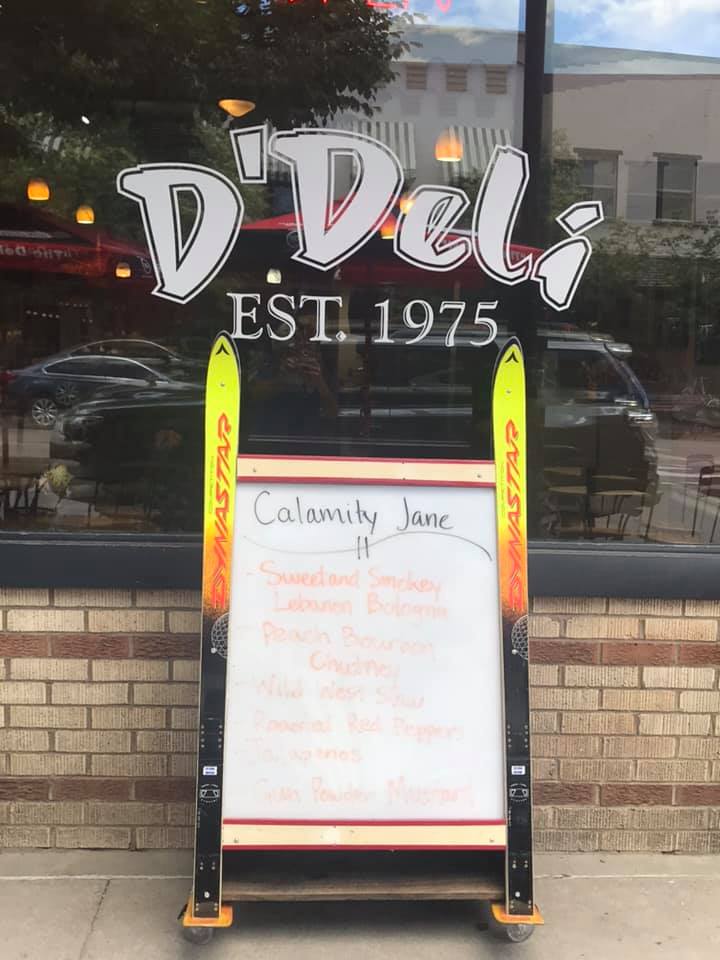 D'Deli
EST. 1975
DYNASTAR
DYNASTAR
Calamity Jane
- Sweet and Smokey
Lebanon Bologna
- Peach Bourbon
Chutney
- Wild West Slaw
- Roasted Red Peppers
- Jalapenos
- Gun Powder Mustard